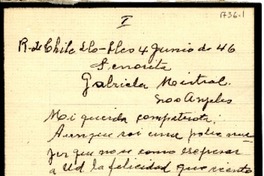 1736.1
I
R. de Chile Llo-Lleo 4 Junio de 46
Señorita
Gabriela Mistral.
Los Angeles
Mi querida compatriota:
Aunque soi una pobre mu-
jer que no se como expresar
a Ud la felicidad que siento